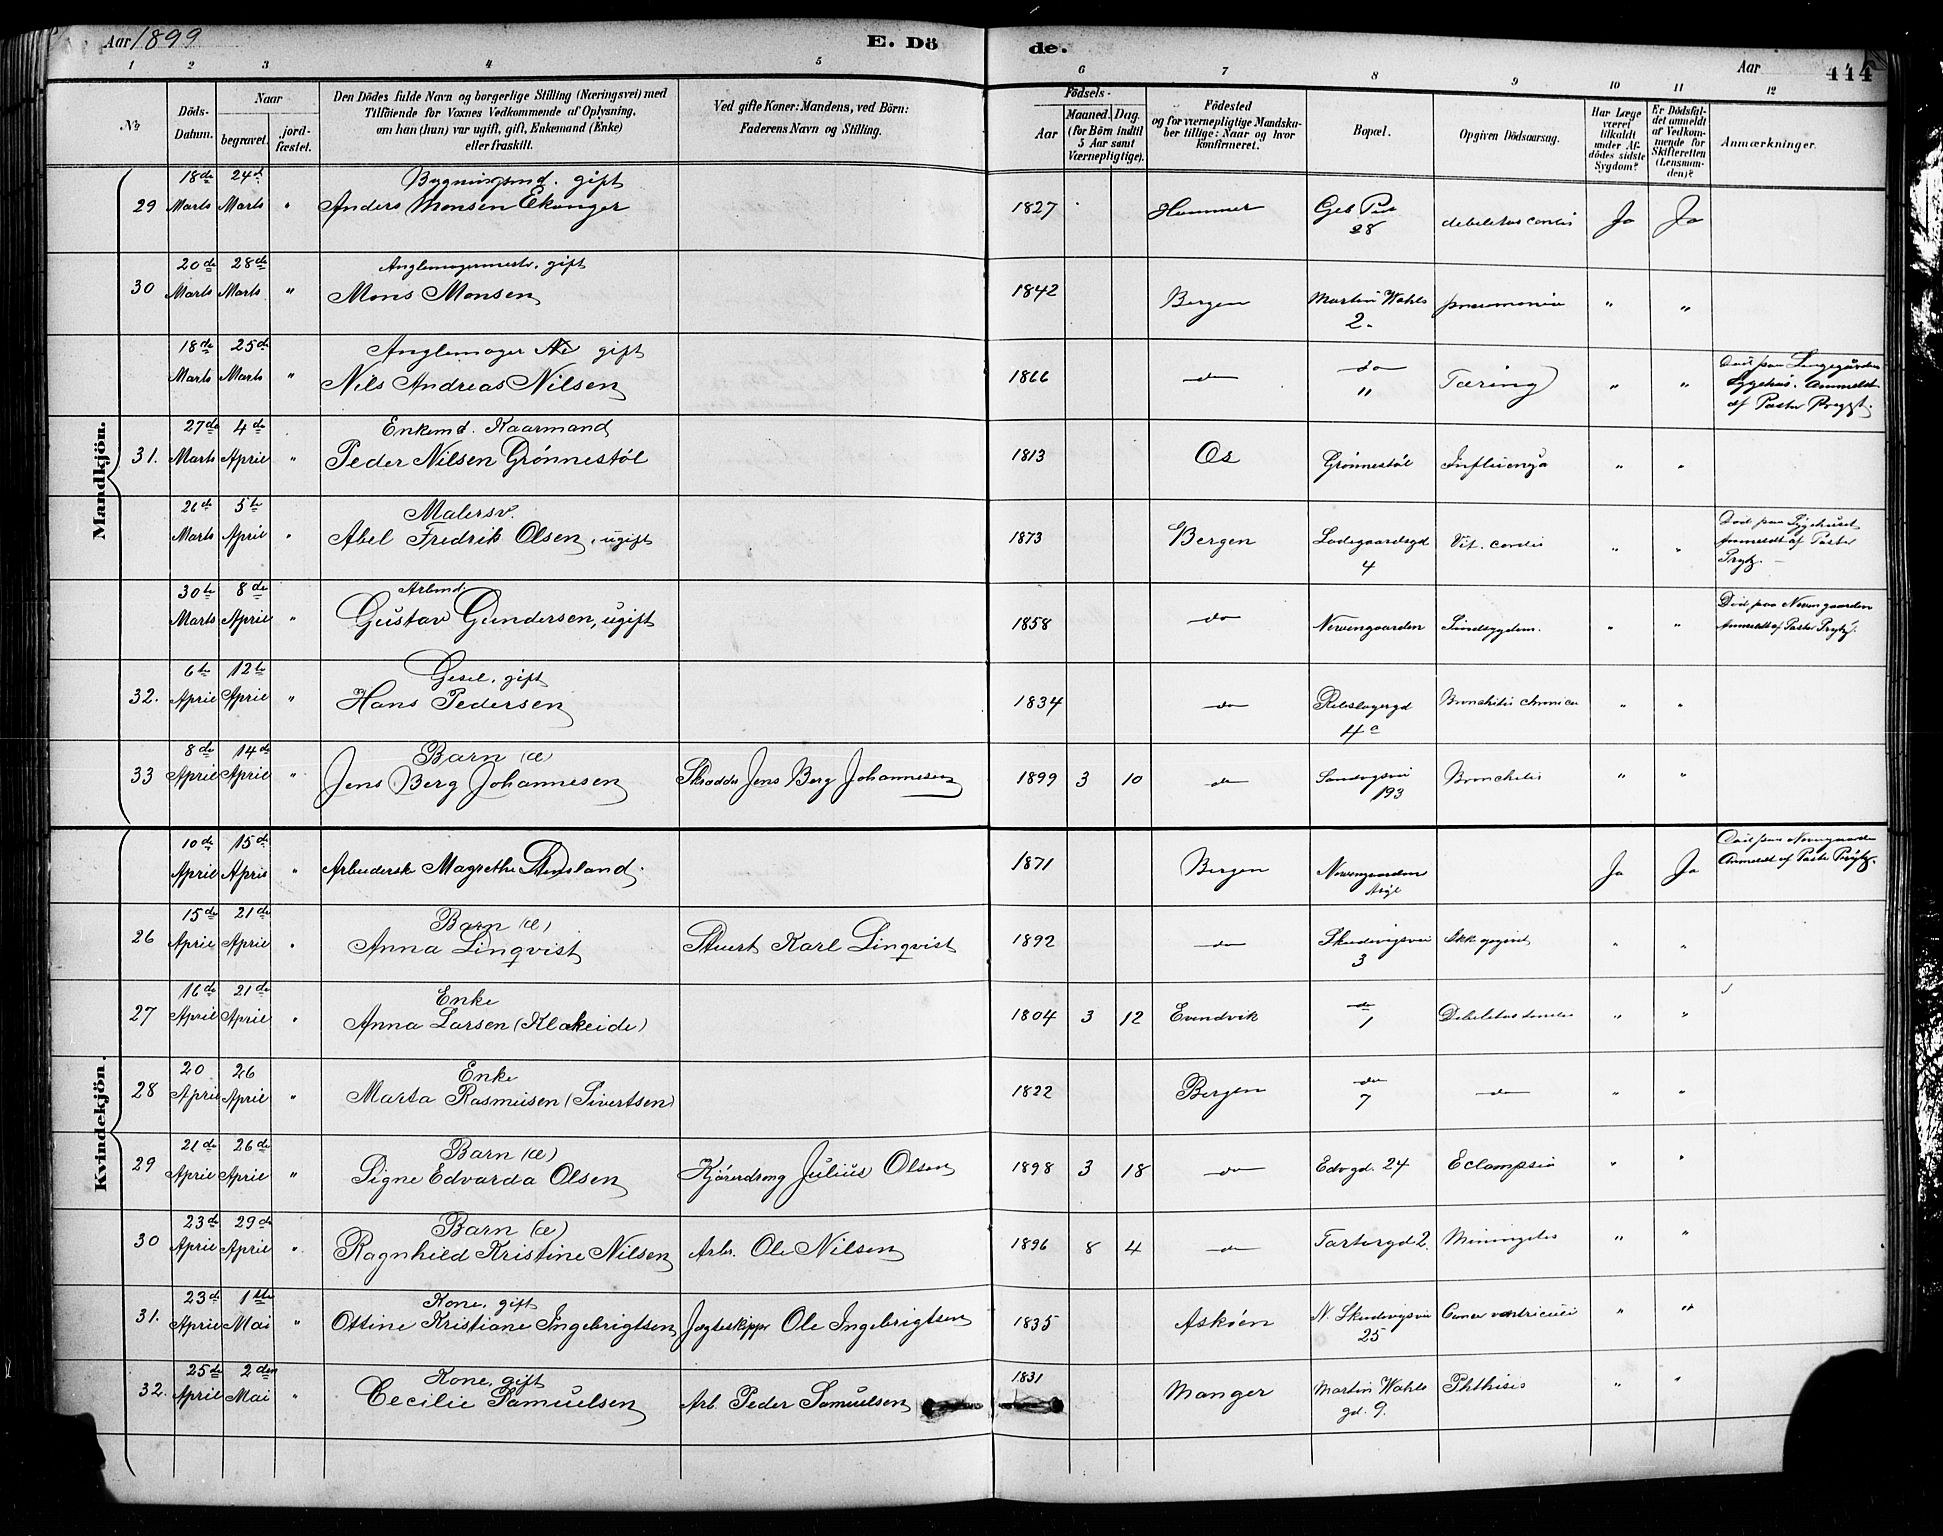 Aar 1899
E. Dö
de.
Aar
114
1 2 3 4 5 6 7 8 9 10 11 12
№
Döds-Datum.
Naar
begravet.
jord-fæstet.
Den Dödes fulde Navn og borgerlige Stilling (Næringsvei) med
Tilföiende for Voxnes Vedkommende af Oplysning,
om han (hun) var ugift, gift, Enkemand (Enke)
eller fraskilt.
Ved gifte Koner: Mandens, ved Börn:
Faderens Navn og Stilling.
Födsels-
Aar
Maaned. Dag.
(for Börn indtil
5 Aar samt
Værnepligtige).
Födested
og for værnepligtige Mandska-
ber tillige: Naar og hvor
konfirmeret.
Bopæl.
Opgiven Dödsaarsag.
Har Læge
været
tilkaldt
under Af-
dödes sidste
Sygdom?
Er Dödsfal-
det anmeldt
af Vedkom-
mende for
Skifteretten
(Lensman-
den)?
Anmærkninger.
Mandkjön.
18de 24d gift
29 Marts Marts " Anders Monsen Ekanger 1827 Hammer 28 debelitas cordis Ja Ja
20de 28de gift
30 Marts Marts " Mons Monsen 1842 Bergen Martin Wahls 2. pneumonia " "
18de 25d Anglemager gift
Marts Marts " Nils Andreas Nilsen 1866 do do " Tæring " "
Död paa Lungegaardens
Sygehus. Anmeldt
af Pastor
27de 4de Enkemd. Kaarmand
31. Marts Aprie " Peder Nilsen Grönnestöl 1813 Os Grönnestöl Influenza " "
26de 5te Malersv.
Marts Aprie " Abel Fredrik Olsen, ugift 1873 Bergen Ladegaardsgd 4 Vit. cordis " "
Död paa Sygehuset
Anmeldt af Pastor
Prytz.
30te 8de Arbmd
Marts Aprie " Gustav Gundersen, ugift 1858 do Nevengaarden Sindsygdom. " "
Död paa Nevengaarden
Anmeldt af Pastor Prytz.
6te 12te gift
32. Aprie Aprie " Hans Pedersen 1834 do Rebslagergd 4c Bronchitis chronica " "
8de 14de Barn (æ)
33 Aprie Aprie " Jens Berg Johannesen Skrædder Jens Berg Johannesen 1899 3 10 do Sandvigsvei 193 Bronchitis " "
Kvindekjön.
10de 15de
Aprie Apris " Arbeiderske Magrethe 1871 Bergen Nevengaarden Asyl Ja Ja
Död paa Nevengaarden
Anmeldt af Pastor Prytz.
15de 21de Barn (æ)
26 Aprie Aprie " Anna Linqvist Stuert Karl Linqvist 1892 do Skudevigsvei 3 Ikke opgivet " "
16de 21de Enke
27 Aprie Aprie " Anna Larsen (Klakeide) 1804 3 12 Evindvik do 1 Debelitas senilis " "
20 26 Enke
28 Aprie Aprie " Marta Rasmusen (Sivertsen) 1822 Bergen do 7 do " "
21de 26de Barn (æ)
29 Aprie Aprie " Signe Edvarda Olsen Kjöredreng Julius Olsen 1898 3 18 do Edvgd. 24 Eclampsia " "
23de 29de Barn (æ)
30 Aprie Aprie " Ragnhild Kristine Nilsen Arb. Ole Nilsen 1896 8 4 do Tartargd 2. Miningitis " "
23de 1ste Kone, gift
31. Aprie Mai " Ottine Kristiane Ingebrigtsen Jægteskippr Ole Ingebrigtsen 1835 Asköen N. Skudevigsvei 25 Cancer ventriculi " "
25de 2den Kone, gift
32. Aprie Mai " Cecilie Samuelsen Arb. Peder Samuelsen 1831 Manger Martin Wahls gd. 9. Phthisis " "